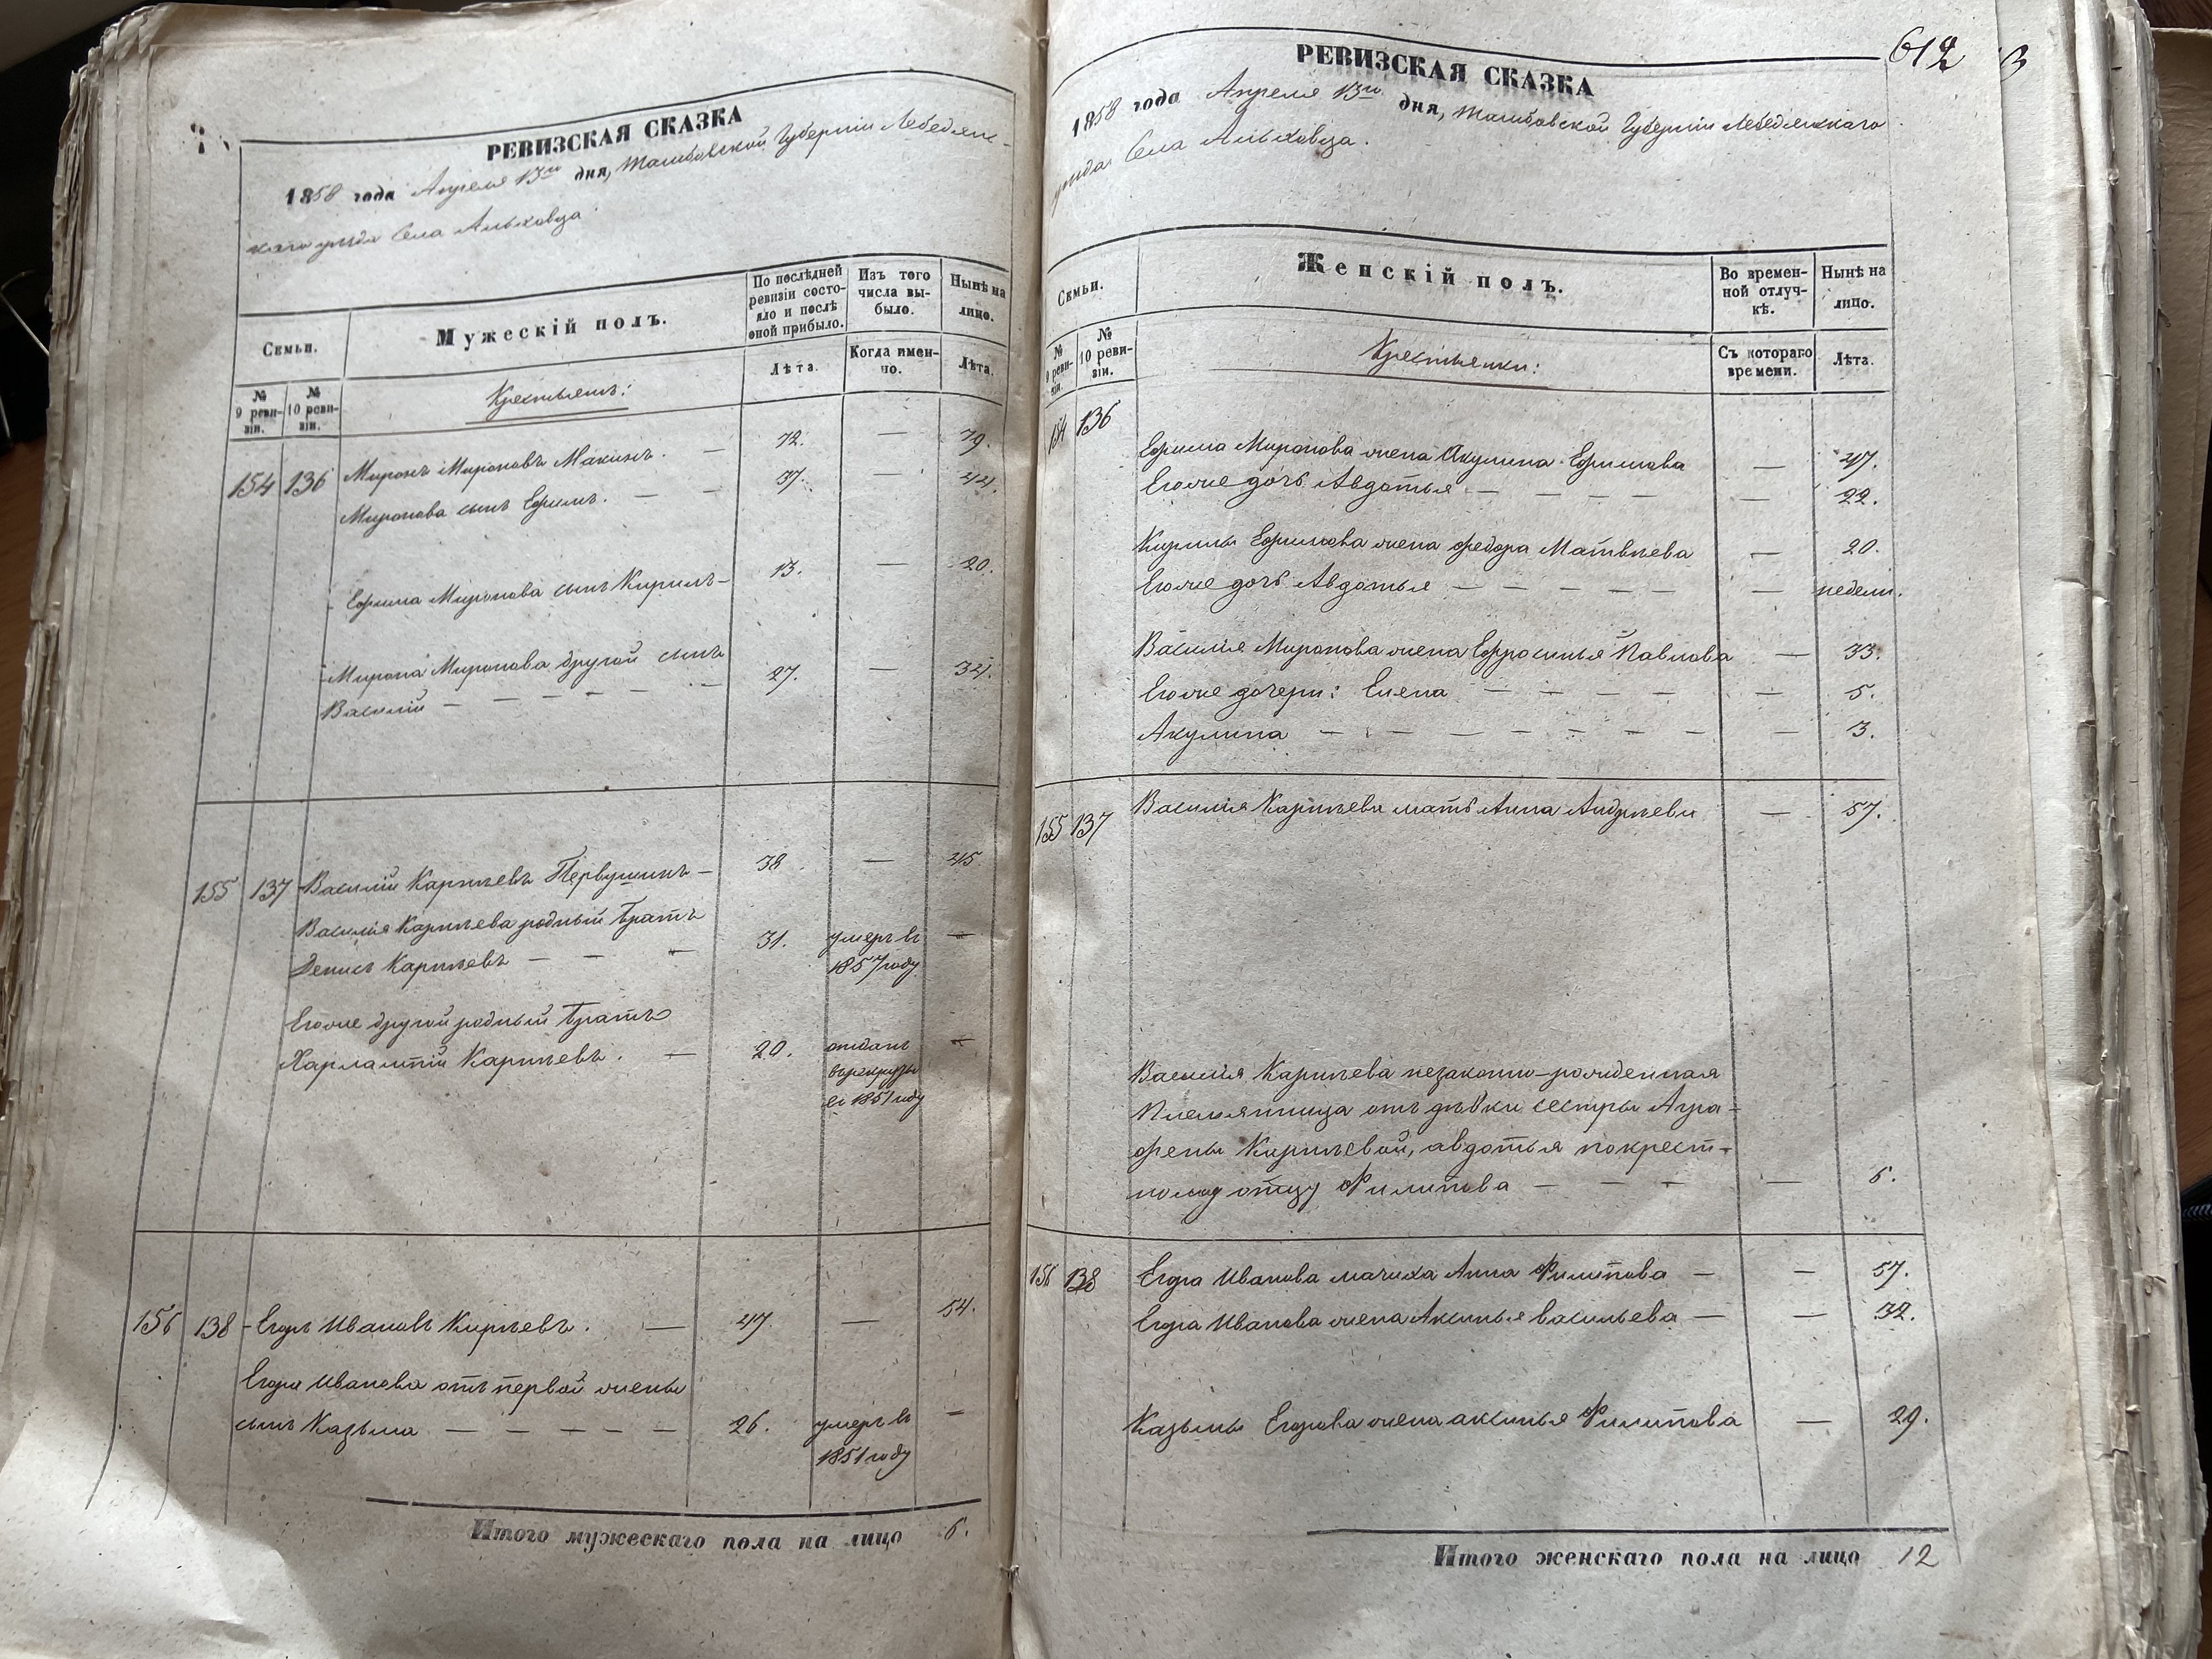 РЕВИЗСКАЯ СКАЗКА
1858 года Апреля 13го дня, Тамбовской Губернiи Лебедян-
скаго уѣзда Села Альховца
Семьи.
Мужескій полъ.
По послѣдней ревизіи состояло и послѣ оной прибыло.
Изъ того числа выбыло.
Нынѣ на лицо.
№ 9 ревизіи.
№ 10 ревизіи.
Крестьянъ:
Лѣта.
Когда именно.
Лѣта.
154 136 Миронъ Мироновъ Макинъ. — 72. — 79.
Миронова сынъ Ефимъ. — — 37. — 44.
Ефима Миронова сынъ Кирилъ — 13. — 20.
Мирона Миронова другой сынъ
Василій — — — — — — 27. — 34.
155 137 Василій Карпѣевъ Первушинъ — 38 — 45.
Василія Карпѣева родный братъ
Денисъ Карпѣевъ — — — 31. умеръ въ 1857 году —
Егоже другой родный братъ
Харлампій Карпѣевъ. — 20. отданъ въ рекруты въ 1851 году —
156 138 Егоръ Ивановъ Кирѣевъ. — 47. — 54.
Егора Иванова отъ первой жены
сынъ Казьма — — — — — 26. умеръ въ 1851 году —
Итого мужескаго пола на лицо 6.
612 3
РЕВИЗСКАЯ СКАЗКА
1858 года Апреля 13го дня, Тамбовской Губернiи Лебедянскаго
уѣзда Села Альховца.
Семьи.
Женскій полъ.
Во временной отлучкѣ.
Нынѣ на лицо.
№ 9 ревизіи.
№ 10 ревизіи.
Крестьянки:
Съ котораго времени.
Лѣта.
154 136 Ефима Миронова жена Акулина Ефимова — 47.
Егоже дочь Авдотья — — — — — 22.
Кирилы Ефимова жена Федора Матвѣева — 20.
Егоже дочь Авдотья — — — — — — недели.
Василія Миронова жена Ефросинья Павлова — 33.
Егоже дочери: Елена — — — — — — 5.
Акулина — — — — — — — — 3.
155 137 Василія Карпѣева мать Анна Андрѣева — 57.
Василія Карпѣева незаконно-рожденная
племянница отъ дѣвки сестры Агра-
фены Кирпѣевой, авдотья покрест-
ному отцу Филипова — — — — 6.
156 138 Егора Иванова мачиха Анна Филипова — — 57.
Егора Иванова жена Аксинья васильева — — 32.
Казьмы Егорова жена аксинья Филипова — 29.
Итого женскаго пола на лицо 12